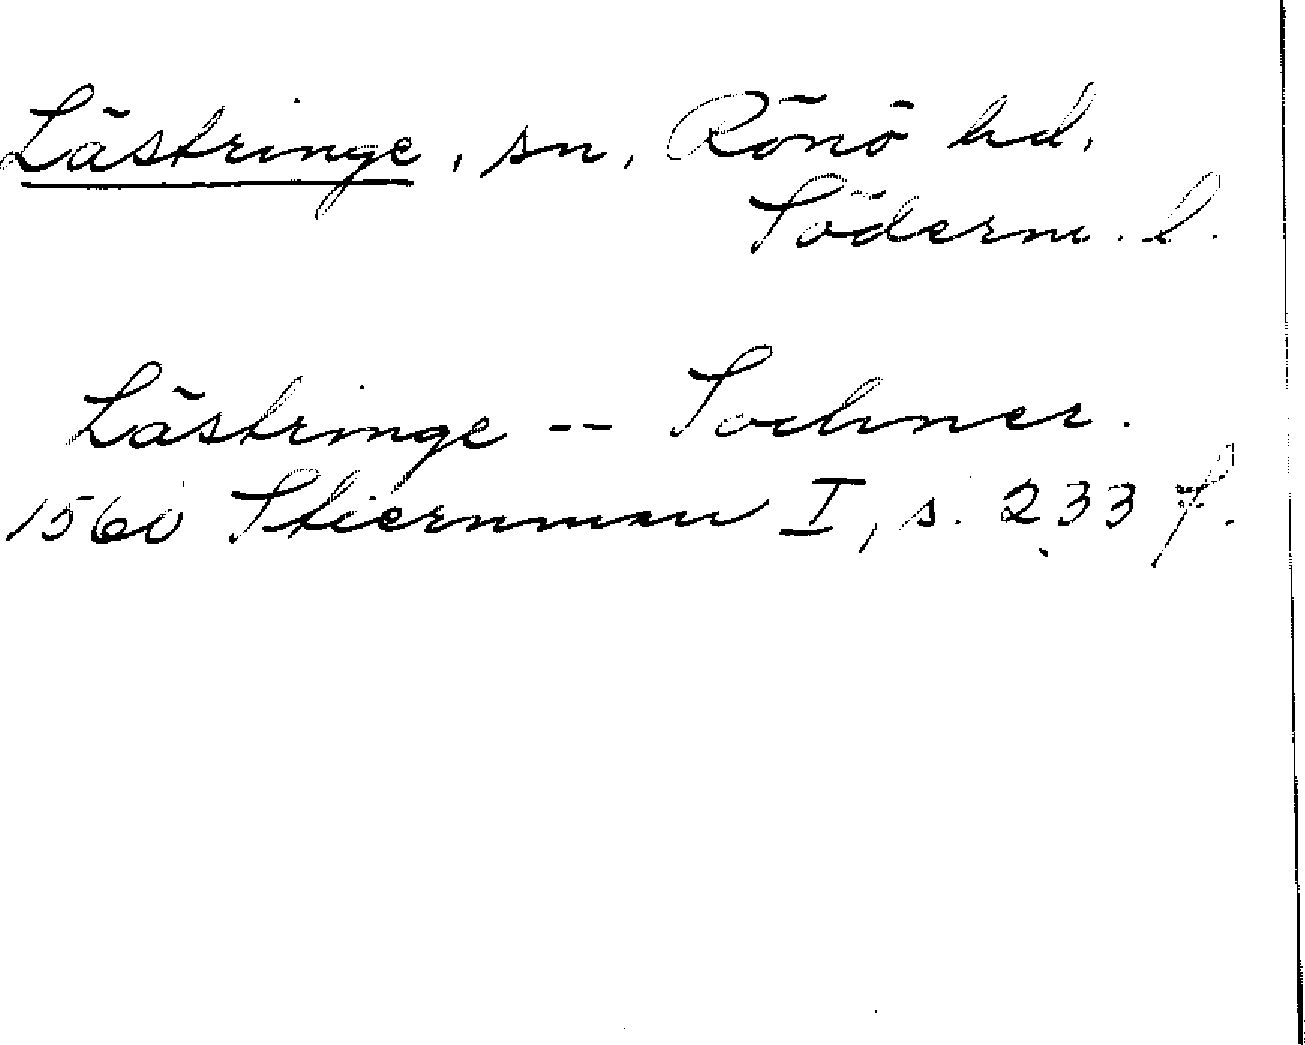 Lästringe, sn, Rönö hd,
Söderm. l.
Lästringe -- Sochner.
1560 Stiernman I, s. 233 f.